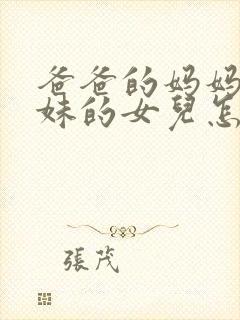 爸爸的妈妈
妹的女兒怎
張茂